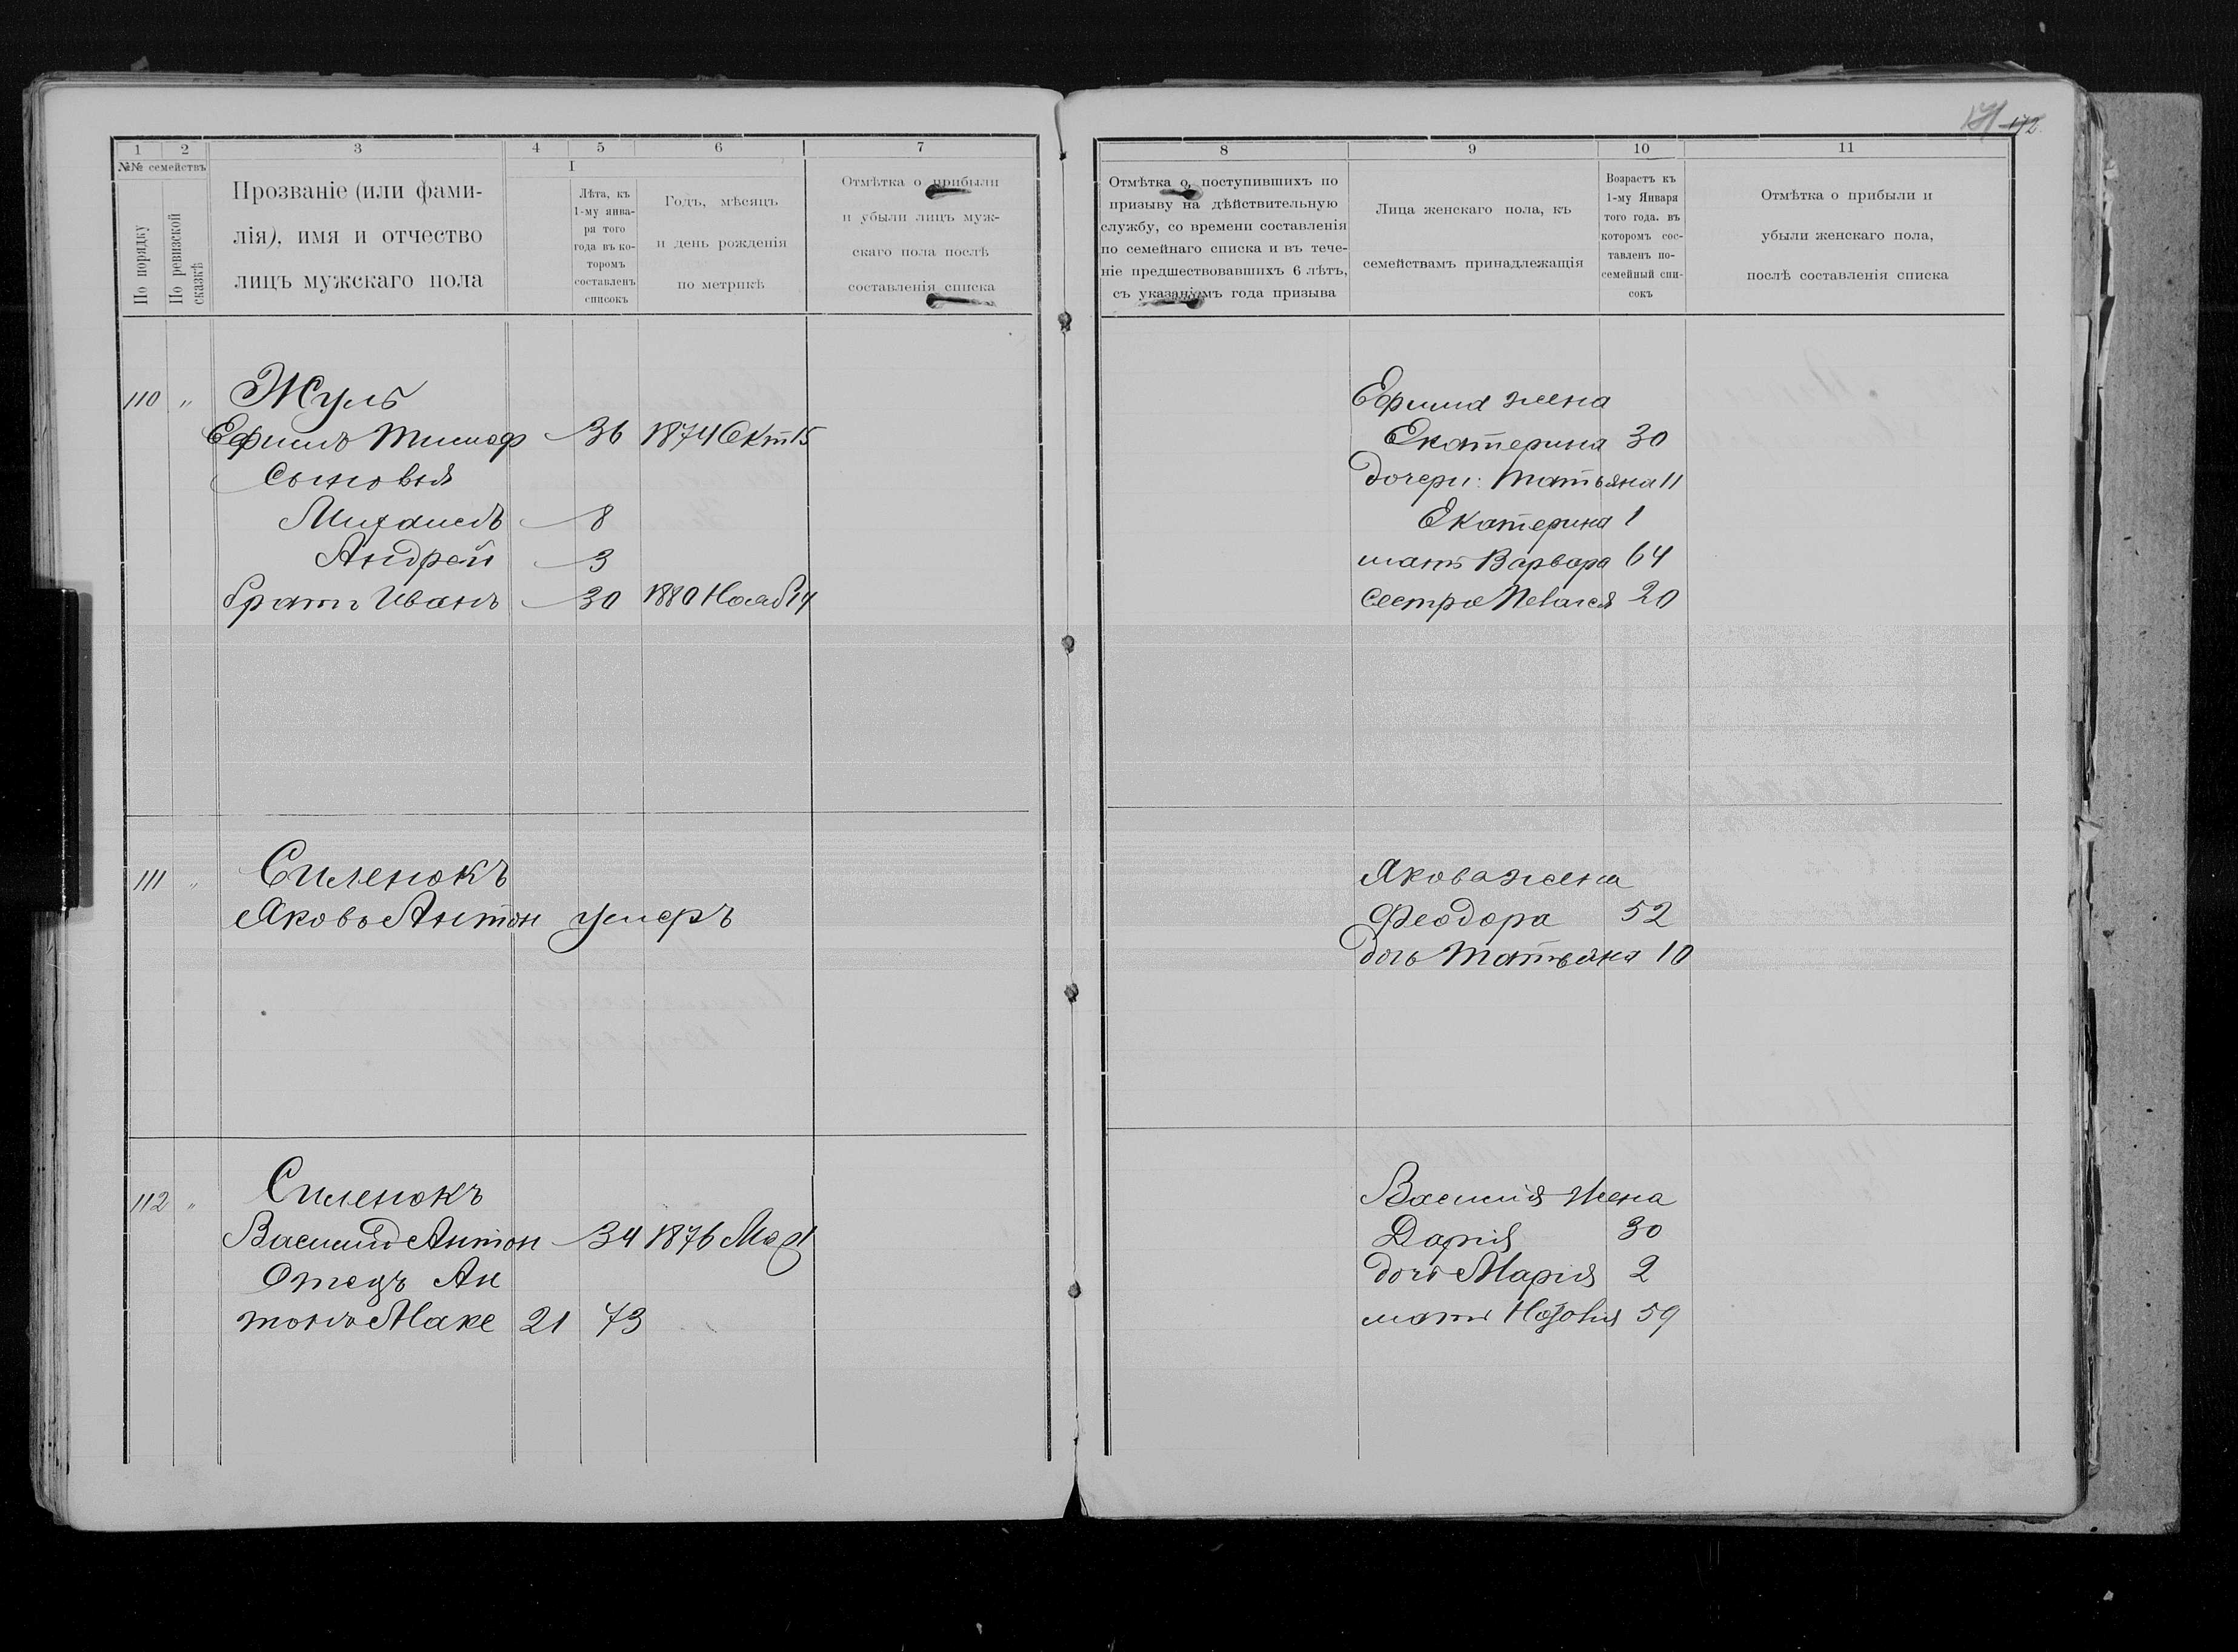 171 172
1 2 3 4 5 6 7
№№ семействъ
По порядку
По ревизской сказкѣ
Прозваніе (или фами-
лія), имя и отчество
лицъ мужскаго пола
I
Лѣта, къ
1-му янва-
ря того
года въ ко-
торомъ
составленъ
списокъ
Годъ, мѣсяцъ
и день рожденія
по метрикѣ
Отмѣтка о прибыли
и убыли лицъ муж-
скаго пола послѣ
составленія списка
8 9 10 11
Отмѣтка о поступившихъ по
призыву на дѣйствительную
службу, со времени составленія
по семейнаго списка и въ тече-
ніе предшествовавшихъ 6 лѣтъ,
съ указаніемъ года призыва
Лица женскаго пола, къ
семействамъ принадлежащія
Возрастъ къ
1-му Января
того года. въ
которомъ сос-
тавленъ по-
семейный спи-
сокъ
Отмѣтка о прибыли и
убыли женскаго пола,
послѣ составленія списка
110 " Жуль
Ефимъ Тимоф 36 1874 Окт 15
Сыновья
Михаилъ 8
Андрей 3
братъ Иванъ 30 1880 Нояб 14
Ефима жена
Екатерина 30
дочери: Татьяна 11
Екатерина 1
мать Варвара 64
сестра Пелагея 20
111 " Силенокъ
Яковъ Антон умеръ
Якова жена
Феодора 52
дочь Татьяна 10
112 " Силенокъ
Василій Антон 34 1876 Мар 1
Отецъ Ан
тонъ Маке 21 73
Василія жена
Дарія 30
дочь Марія 2
мать 59